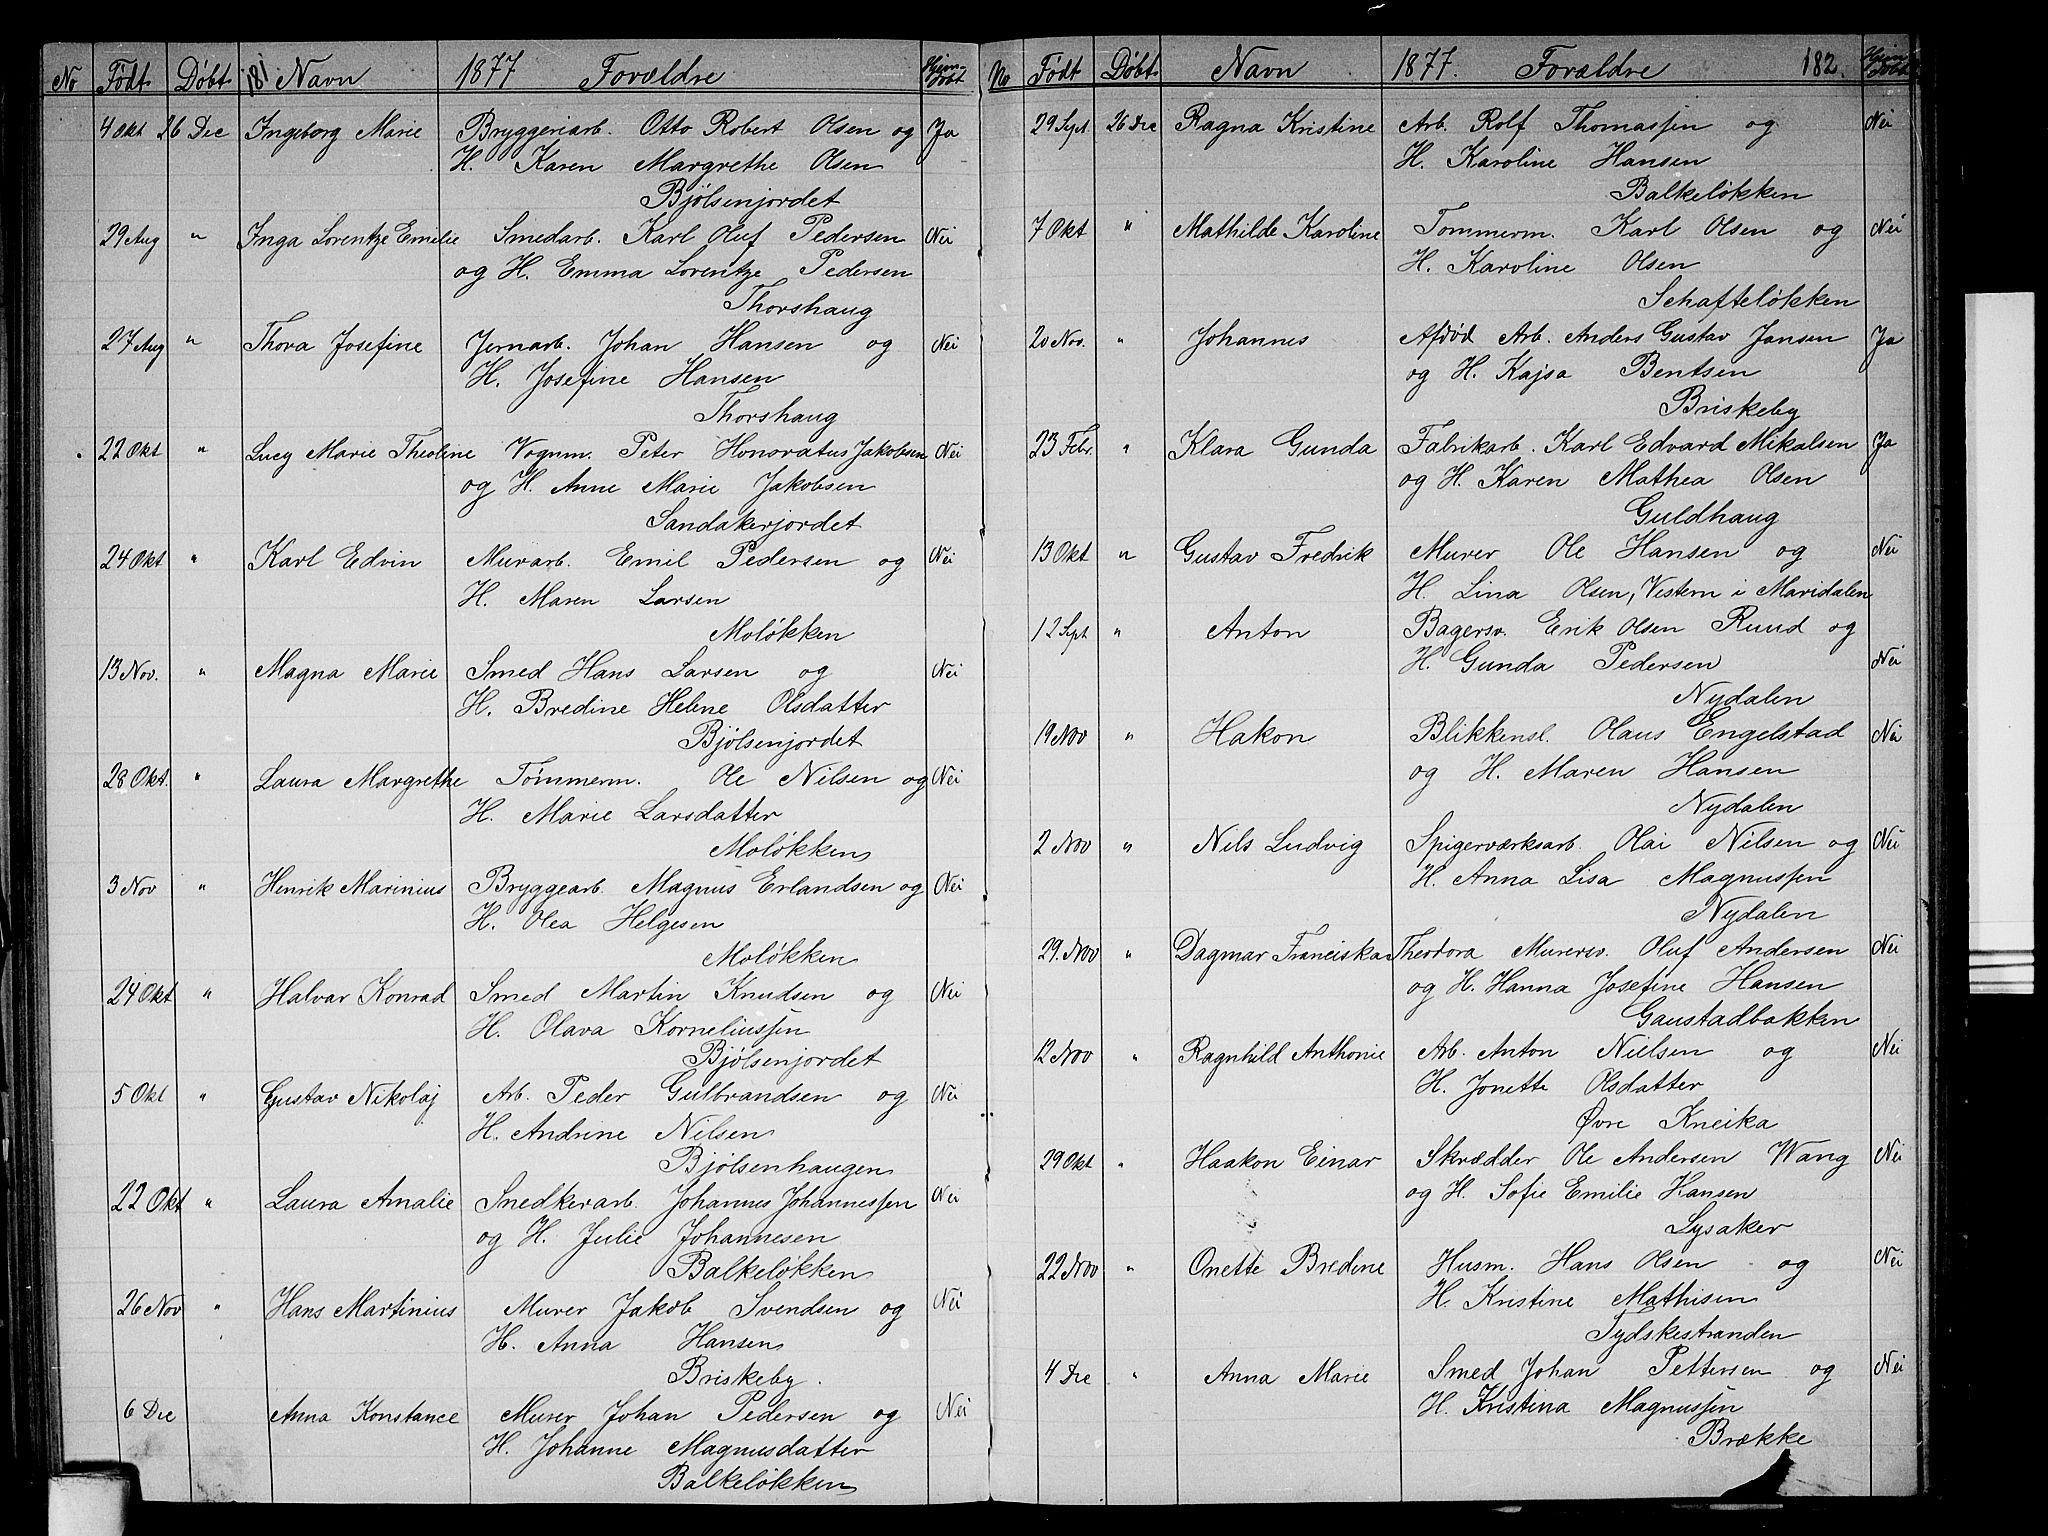 No Født Døbt 181 Navn 1877 Forældre Hjem-døbt
4 Okt 26 Dec Ingeborg Marie Bryggeriarb. Otto Robert Olsen og Ja
H. Karen Margrethe Olsen
Bjølsenjordet
29 Aug " Inga Lorentze Emelie Smedarb. Karl Oluf Pedersen Nei
og H. Emma Lorentze Pedersen
Thorshaug
27 Aug " Thora Josefine Jernarb. Johan Hansen og Nei
H. Josefine Hansen
Thorshaug
22 Okt " Lucy Marie Theoline Vognm. Peter Honoratus Jakobsen Nei
og H. Anne Marie Jakobsen
Sandakerjordet
24 Okt " Karl Edvin Murarb. Emil Pedersen og Nei
H. Maren Larsen
Moløkken
13 Nov. " Magna Marie Smed Hans Larsen og Nei
H. Bredine Helene Olsdatter
Bjølsenjordet
28 Okt. " Laura Margrethe Tømmerm. Ole Nilsen og Nei
H. Marie Larsdatter
Moløkken
3 Nov " Henrik Marinius Bryggearb. Magnus Erlandsen og Nei
H. Olea Helgesen
Moløkken
24 Okt " Halvar Konrad Smed Martin Knudsen og Nei
H. Olava Korneliussen
Bjølsenjordet
5 Okt " Gustav Nikolaj Arb. Peder Gulbrandsen og Nei
H. Andrine Nilsen
Bjølsenhaugen
22 Okt " Laura Amalie Snedkerarb. Johannes Johannessen Nei
og H. Julie Johannesen
Balkeløkken
26 Nov " Hans Martinius Murer Jakob Svendsen og Nei
H. Anna Hansen
Briskeby.
6 Dec Anna Konstance Murer Johan Pedersen og Nei
H. Johanne Magnusdatter
Balkeløkken
No Født Døbt Navn 1877. Forældre 182. Hjem-døbt
29 Sept. 26 Dec Ragna Kristine Arb. Rolf Thomassen og Nei
H. Karoline Hansen
Balkeløkken
7 Okt " Mathilde Karoline Tømmerm. Karl Olsen og Nei
H. Karoline Olsen
Schafteløkken
20 Nov. " Johannes Afdød Arb. Anders Gustav Jansen Ja
og H. Kajsa Bentsen
Briskeby
23 Febr. " Klara Gunda Fabrikarb. Karl Edvard Mikalsen Ja
og H. Karen Mathea Olsen
Guldhaug
13 Okt " Gustav Fredrik Murer Ole Hansen og Nei
H. Lina Olsen, Vestern i Maridalen
12 Sept " Anton Bagersv. Erik Olsen Ruud og
H. Gunda Pedersen Nei
Nydalen
19 Nov " Hakon Blikkensl. Olaus Engelstad Nei
og H. Maren Hansen
Nydalen
2 Nov " Nils Ludvig Spigerværksarb. Olai Nilsen og Nei
H. Anna Lisa Magnussen
Nydalen
29. Nov " Dagmar Franciska Theodora Murersv. Oluf Andersen Nei
og H. Hanna Josefine Hansen
Gaustadbakken
12 Nov " Ragnhild Anthonie Arb. Anton Nielsen og Nei
H. Jonette Olsdatter
Øvre Kneika
29 Okt " Haakon Einar Skrædder Ole Andersen Wang Nei
og H. Sofie Emilie Hansen
Lysaker
22 Nov " Onette Bredine Husm. Hans Olsen og Nei
H. Kristine Mathisen
Tydskestranden
4 Dec " Anna Marie Smed Johan Pettersen og Nei
H. Kristina Magnussen
Brække